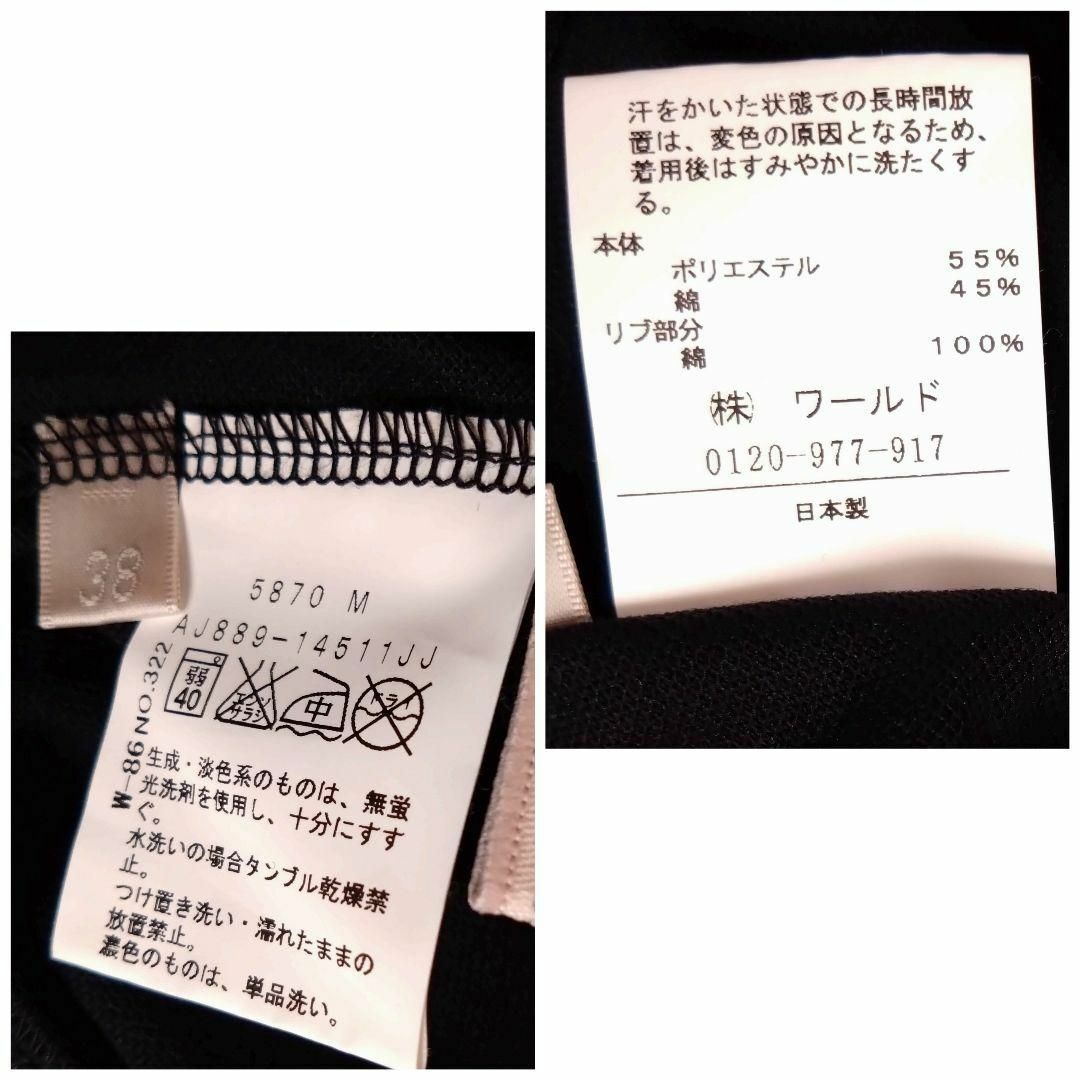 汗をかいた状態での長時間放
置は、変色の原因となるため、
着用後はすみやかに洗たくす
る。
本体
ポリエステル 55%
綿 45%
リブ部分
綿 100%
㈱ ワールド
0120-977-917
日本製
38
5870 M
AJ889-14511JJ
弱
40
エンソ
サラシ
中
ドライ
W-86NO.322
生成・淡色系のものは、無蛍
光洗剤を使用し、十分にすす
ぐ。
水洗いの場合タンブル乾燥禁
止。
つけ置き洗い・濡れたままの
放置禁止。
濃色のものは、単品洗い。